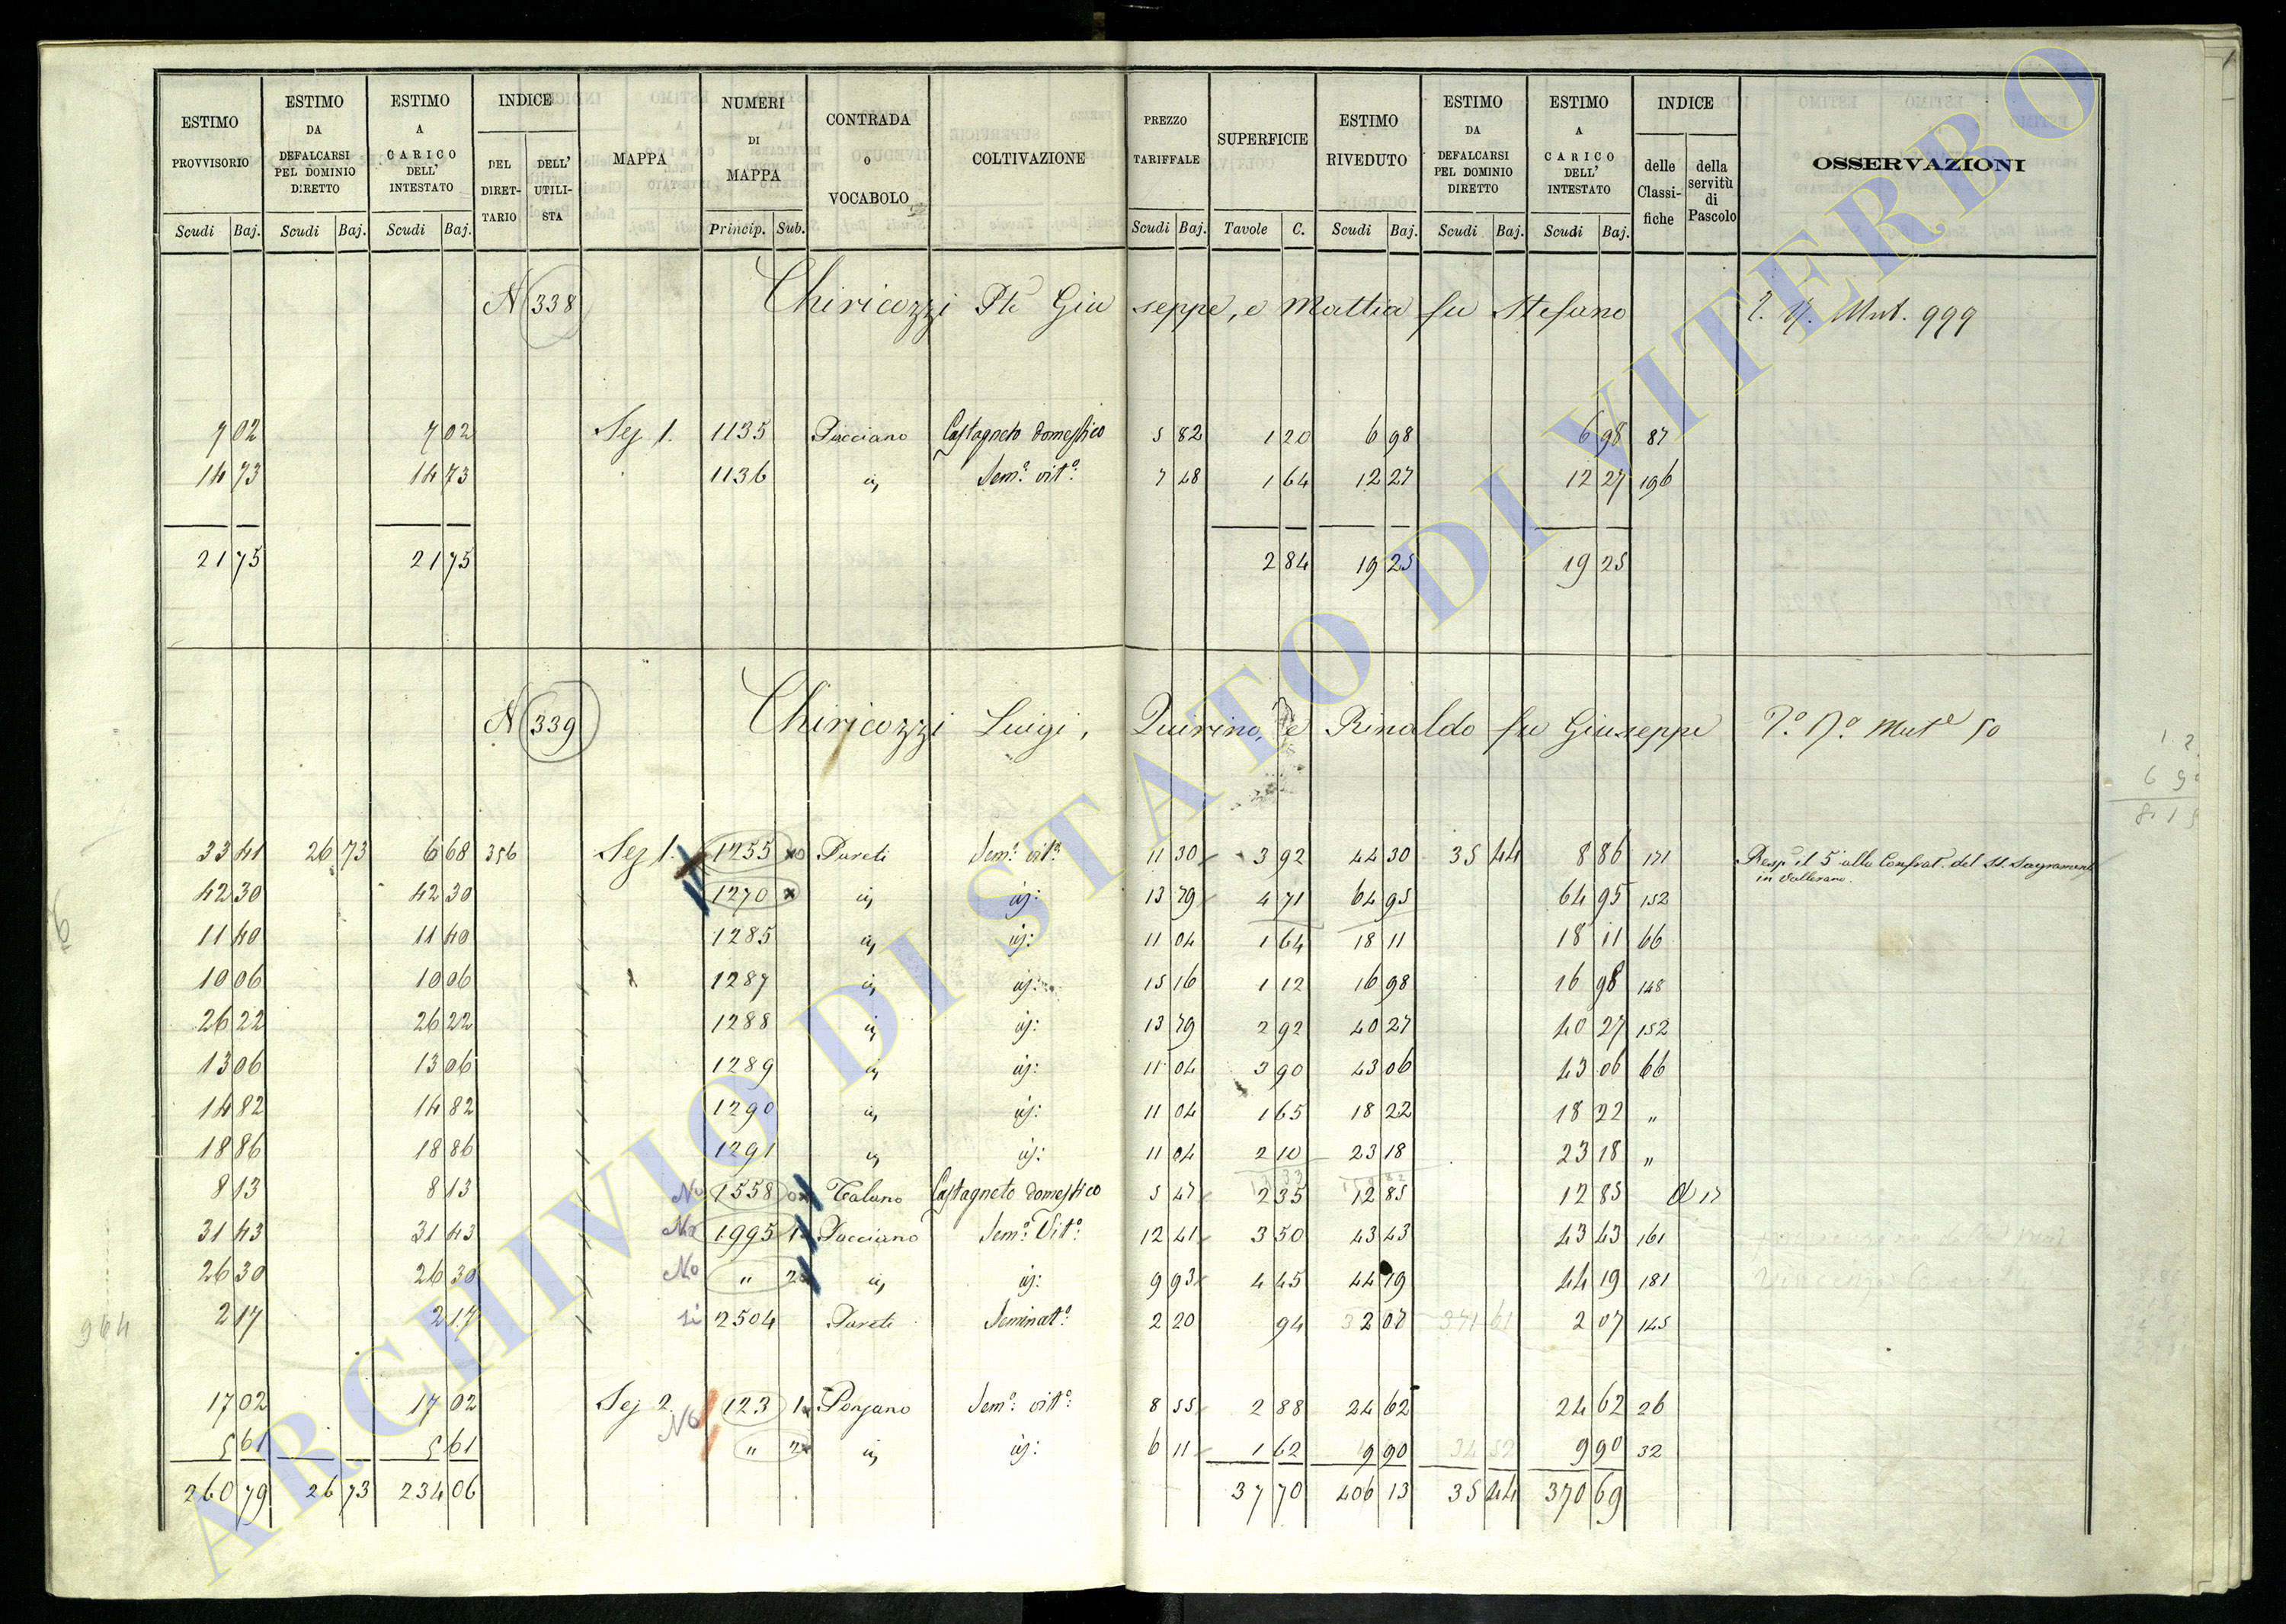 ESTIMO PROVVISORIO | ESTIMO DA DEFALCARSI PEL DOMINIO DIRETTO | ESTIMO A CARICO DELL' INTESTATO | INDICE DEL DIRETTARIO | DELL' UTILISTA | MAPPA | NUMERI DI MAPPA | CONTRADA O VOCABOLO | COLTIVAZIONE | PREZZO TARIFFALE | SUPERFICIE | ESTIMO RIVEDUTO | ESTIMO DA DEFALCARSI PEL DOMINIO DIRETTO | ESTIMO A CARICO DELL' INTESTATO | INDICE delle Classifiche | della servitù di Pascolo | OSSERVAZIONI
Scudi Baj. Scudi Baj. Scudi Baj. Princip. Sub. Scudi Baj. Tavole C. Scudi Baj. Scudi Baj. Scudi Baj.
N 338 Chiricozzi Giuseppe, e Mattia fu Stefano Mut. 999
7 02 7 02 Sez 1. 1135 Pacciano Castagneto domestico 5 82 1 20 6 98 6 98 87
14 73 14 73 1136 Sem.o vit.o 7 48 1 64 12 27 12 27 196
21 75 21 75 2 84 19 25 19 25
N 339 Chiricozzi Luigi, Quirino, e Rinaldo fu Giuseppe Mut.e 50
33 41 26 73 6 68 356 Sez 1. 1255 Pureti Sem.o vit.o 11 30 3 92 44 30 35 44 8 86 171 Resp. il 5 alla Confrat. del SS. Sagramento
in Vallerano.
42 30 42 30 1270 13 79 4 71 64 95 64 95 152
11 40 11 40 1285 11 04 1 64 18 11 18 11 66
10 06 10 06 1287 15 16 1 12 16 98 16 98 148
26 22 26 22 1288 13 79 2 92 40 27 40 27 152
13 06 13 06 1289 11 04 3 90 43 06 43 06 66
14 82 14 82 1290 11 04 1 65 18 22 18 22 "
18 86 18 86 1291 11 04 2 10 23 18 23 18 "
8 13 8 13 No 1558 Talano Castagneto domestico 5 47 2 35 12 85 12 85 17
31 43 31 43 No 1995 1 Pacciano Sem.o Vit.o 12 41 3 50 43 43 43 43 161
26 30 26 30 No " 2 9 93 4 45 44 19 44 19 181
2 17 2 17 si 2504 Pureti Seminat.o 2 20 94 2 07 2 07 145
17 02 17 02 Sez 2 No 123 1 Ponzano Sem.o vitt.o 8 55 2 88 24 62 24 62 26
5 61 5 61 " 2 6 11 1 62 9 90 9 90 32
260 79 26 73 234 06 37 70 406 13 35 44 370 69
964
ARCHIVIO DI STATO DI VITERBO